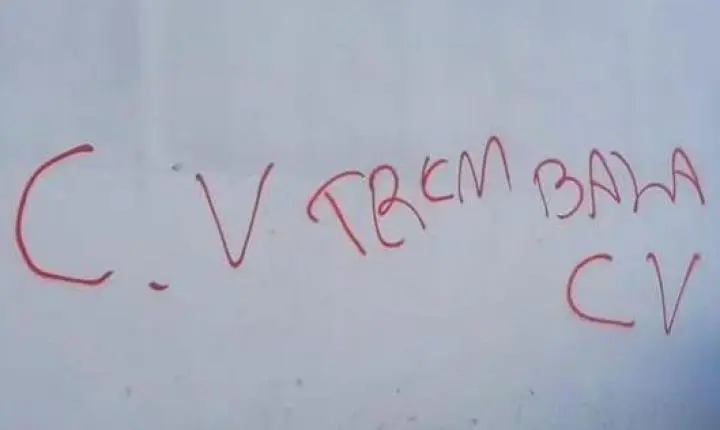 C.V TREM BALA
CV